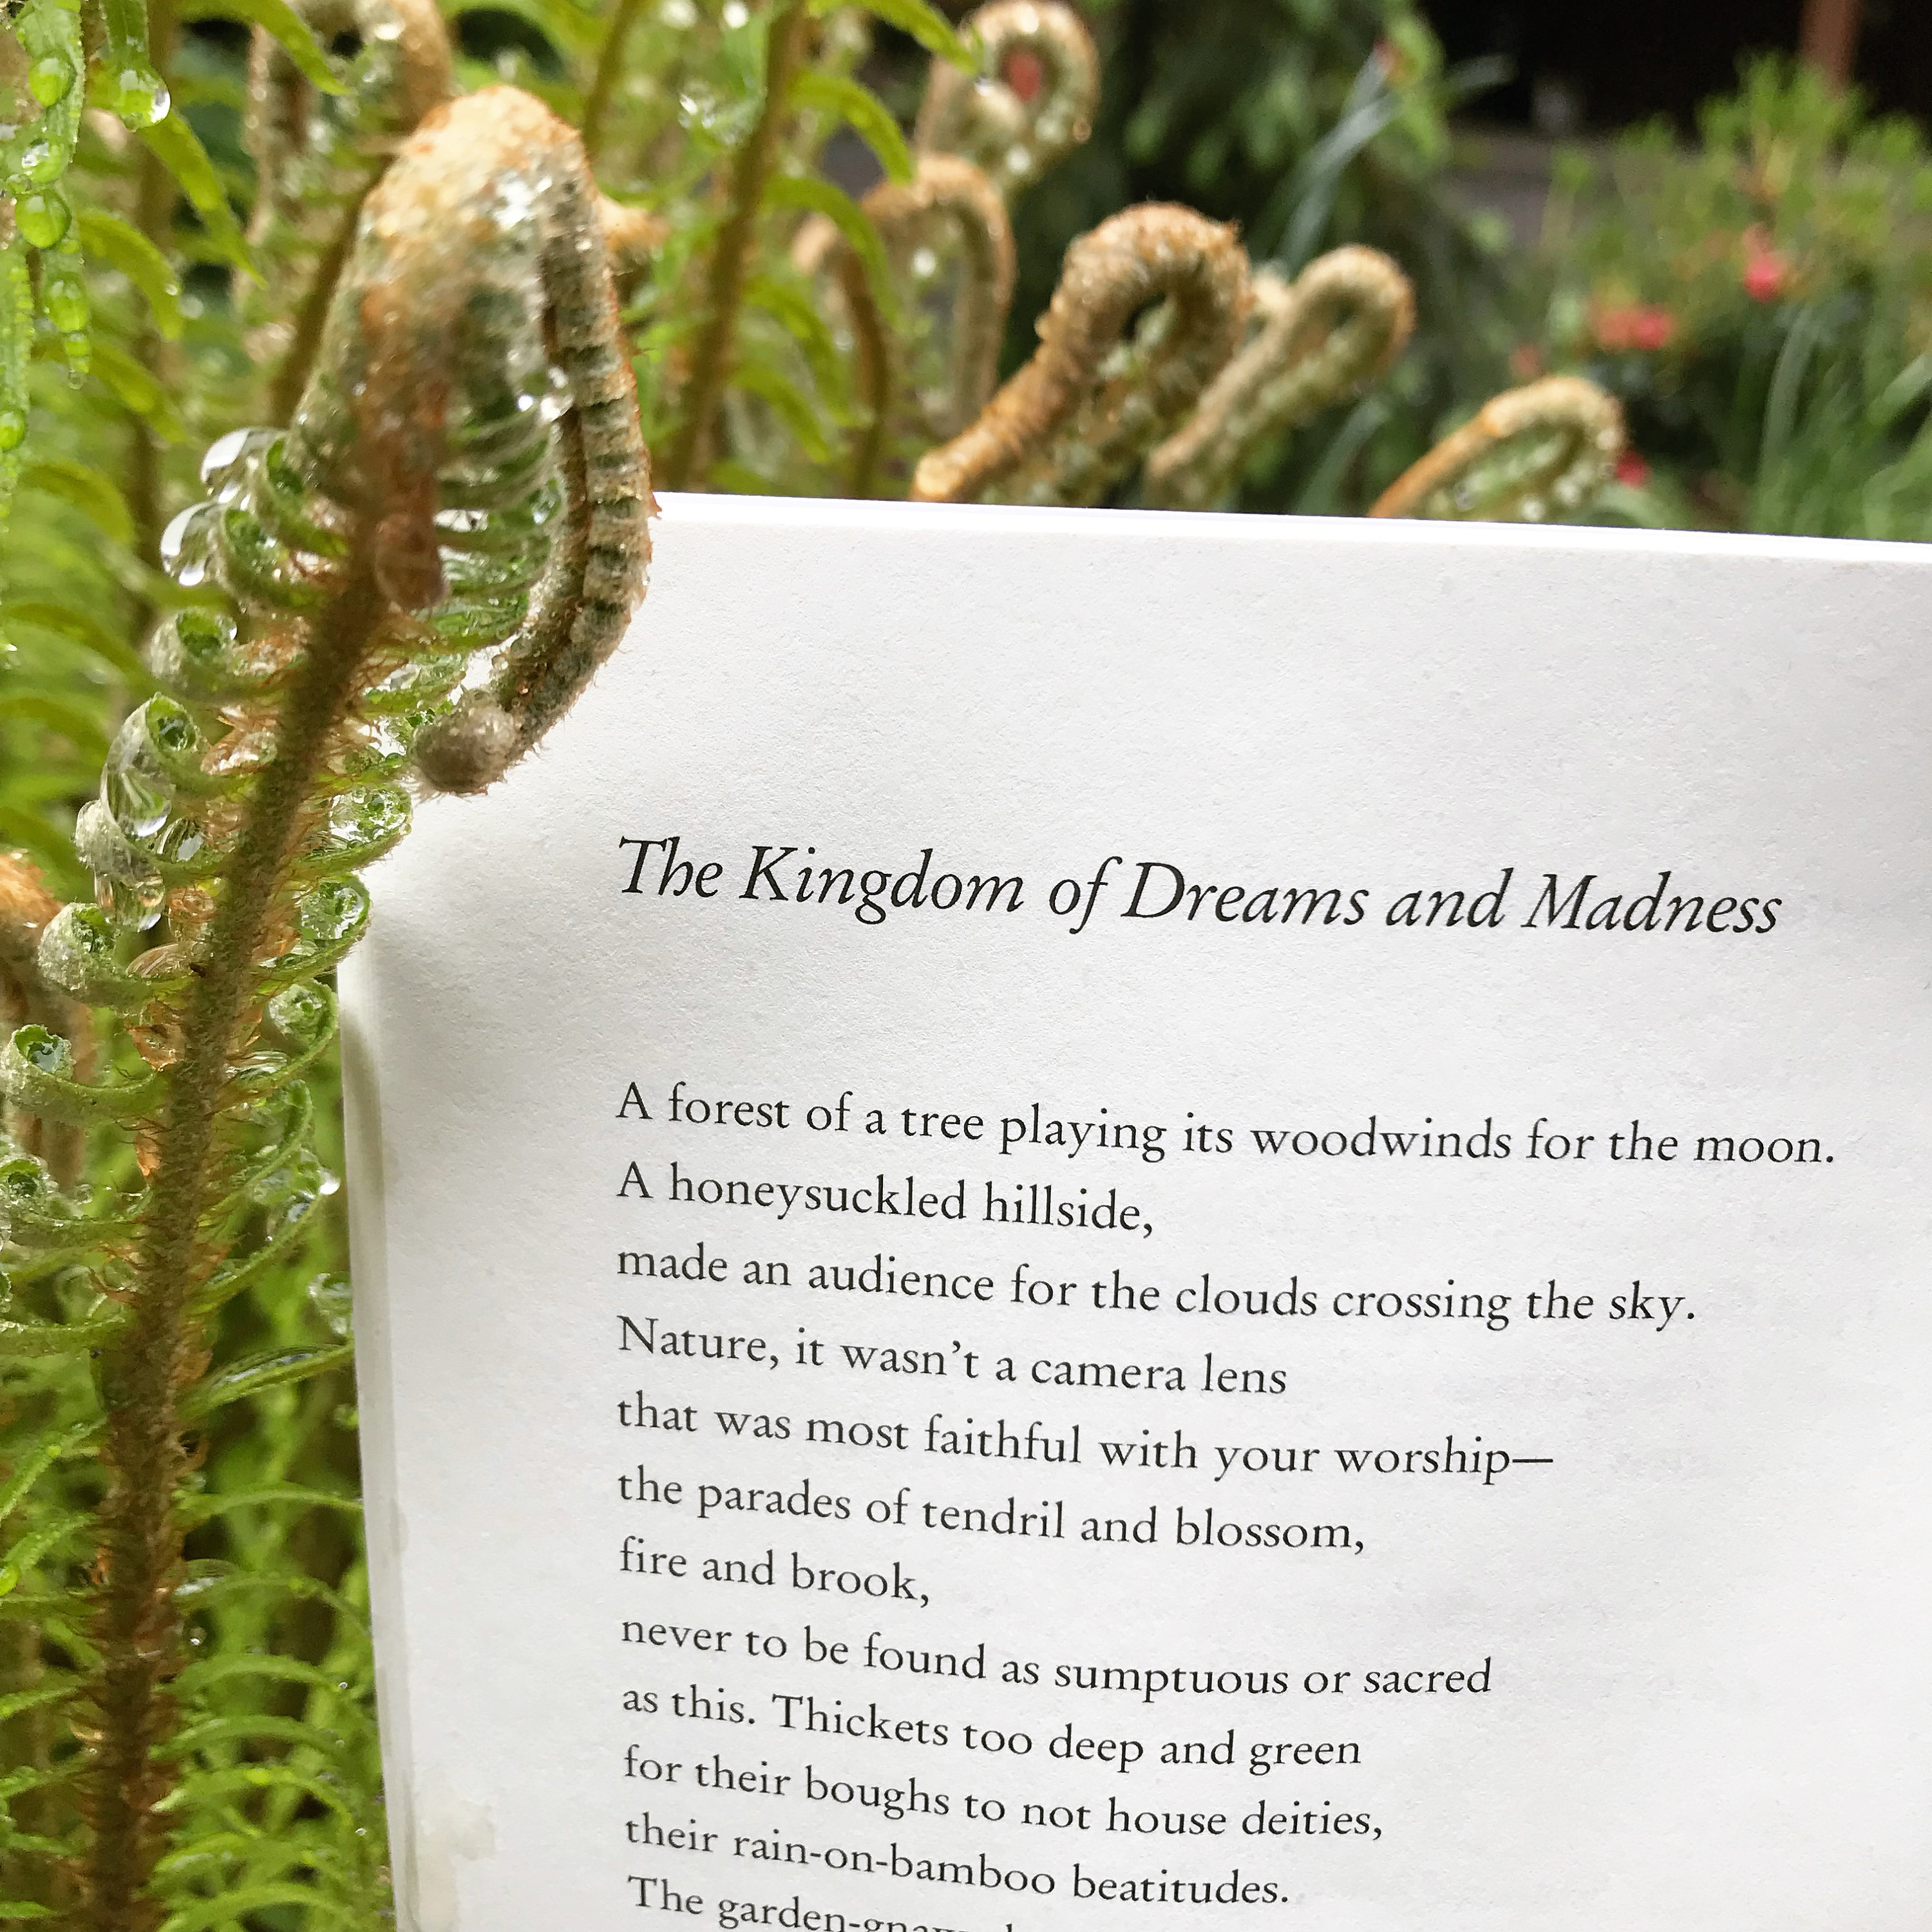 The Kingdom of Dreams and Madness
A forest of a tree playing its woodwinds for the moon.
A honeysuckled hillside,
made an audience for the clouds crossing the sky.
Nature, it wasn't a camera lens
that was most faithful with your worship—
the parades of tendril and blossom,
fire and brook,
never to be found as sumptuous or sacred
as this. Thickets too deep and green
for their boughs to not house deities,
their rain-on-bamboo beatitudes.
The